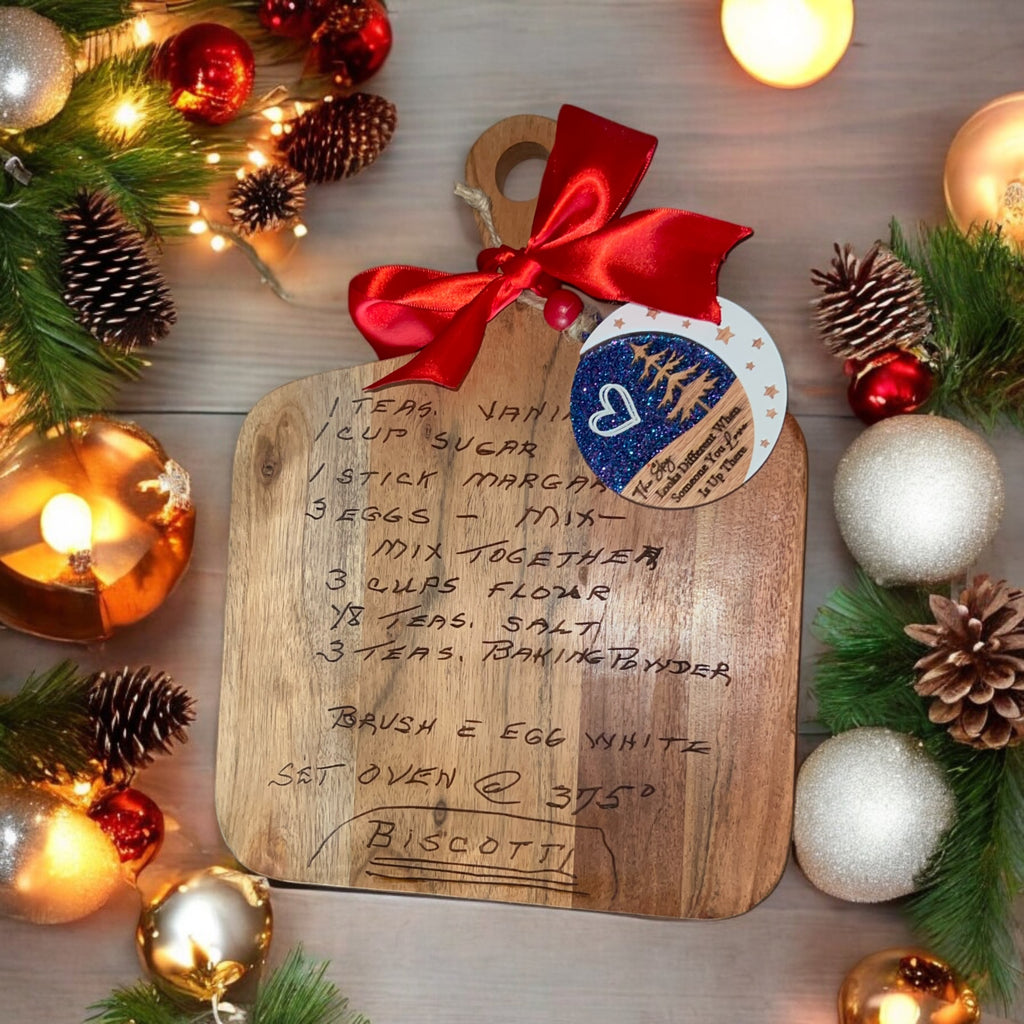 1 TEAS. VANI
1 CUP SUGAR
1 STICK MARGAR
3 EGGS – MIX –
MIX TOGETHER
3 CUPS FLOUR
1/8 TEAS. SALT
3 TEAS. BAKING POWDER
BRUSH E EGG WHITE
SET OVEN @ 375°
BISCOTTI
The Sky
Looks Different When
Someone You Love
Is Up There